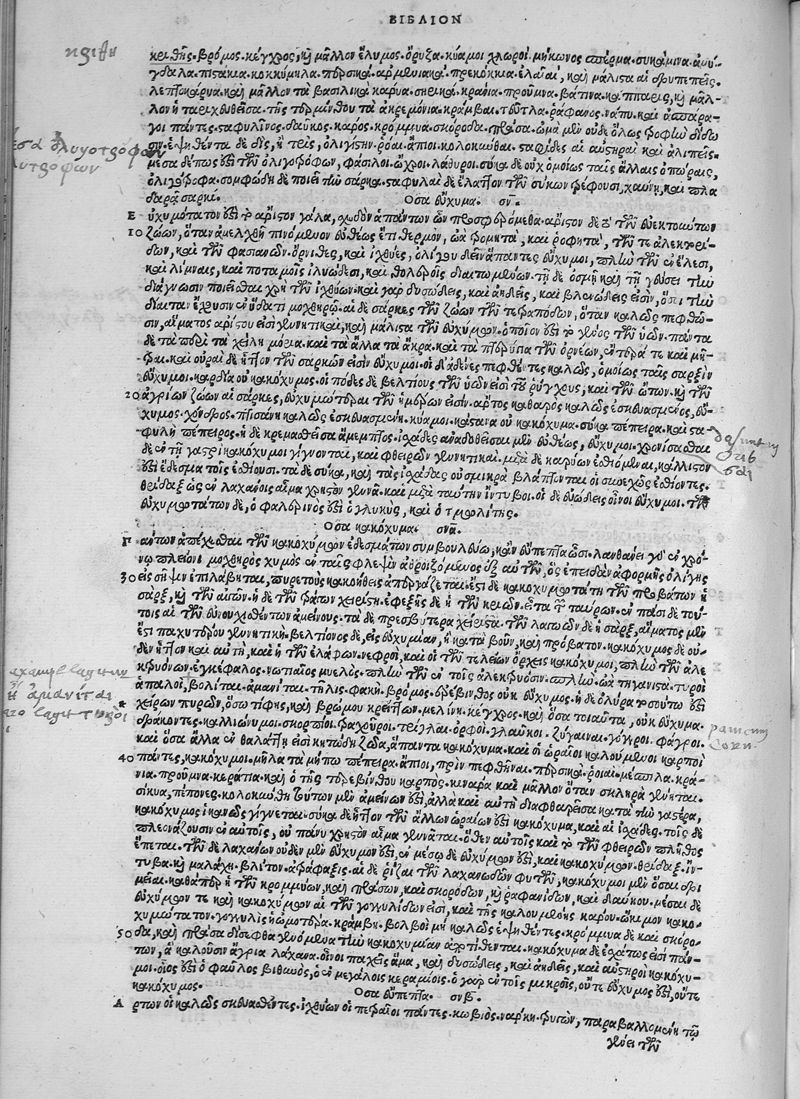 ΒΙΒΛΙΟΝ
κριθῆς. βρόμος. κέγχρος, καὶ μᾶλλον ἔλυμος. ὄρυζα. κύαμοι χλωροί. μήκωνος σπέρμα. συκάμινα. ἀμύ-
γδαλα. πιστάκια. κοκκύμηλα. περσικά. ἀρμενιακά. πρεκόκκια. ἐλαῖαι, καὶ μάλιστα αἱ δρυπεπεῖς.
λεπτοκάρυα. καὶ μᾶλλον τὰ βασιλικὰ κάρυα. συκικά. κράνια. προῦμνα. βάτινα. κάππαρις, καὶ μᾶλ-
λον ἡ ταριχευθεῖσα. τῆς τερμίνθου τὰ ἀκρεμόνια. κράμβαι. τεῦτλα. ῥάφανος. νάπυ. καὶ ἀσπάρα-
γοι πάντες. σταφυλῖνος. δαῦκος. κάρος. κρόμμυα. σκόροδα. πράσα. ὠμὰ μὲν οὐδὲ ὅλως τροφὴν δίδω-
σιν. ἑψηθέντα δὲ δὶς, ἢ τρὶς, ὀλιγίστην. ῥόαι. ἄπιοι. κολοκύνθαι. σταφίδες αἱ αὐστηραὶ καὶ ἀλιπεῖς.
μέσα δέ πως ἐστὶ τῶν ὀλιγοτρόφων, φάσιλοι. ὦχροι. λάθυροι. σῦκα δὲ οὐχ ὁμοίως ταῖς ἄλλαις ὀπώραις,
ὀλιγότροφα. σομφώδη δὲ ποιεῖ τὴν σάρκα. σταφυλαὶ δὲ ἔλαττον τῶν σύκων τρέφουσι, χαύνη, καὶ πλα
δαρᾷ σαρκί.
Ὅσα εὔχυμα. σν.
Εὐχυμότατόν ἐστι τὸ ἄριστον γάλα, σχεδὸν ἁπάντων ὧν προσφερόμεθα. ἄριστον δὲ τῶν εὐεκτούντων
10 ζώων, ὅταν ἀμελχθῇ πινόμενον εὐθέως ἔτι θερμόν, ὠὰ τρομητὰ, καὶ ῥοφητὰ, τῶν τε ἀλεκτορί-
δων, καὶ τῶν φασιανῶν. ὄρνιθες, καὶ ἰχθύες, ὀλίγου δεῖν ἅπαντες εὔχυμοι. πλὴν τῶν ἐν ἕλεσι,
καὶ λίμναις, καὶ ποταμοῖς ἰλυώδεσι, καὶ θολεροῖς διαιτωμένων. τῇ δὲ ὀσμῇ καὶ τῇ γεύσει τὴν
διάγνωσιν ποιεῖσθαι χρὴ τῶν ἰχθύων. καὶ γὰρ δυσώδεις, καὶ ἀηδεῖς, καὶ βλεννώδεις εἰσὶν, ὅσοι τὴν
δίαιταν ἔχουσιν ἐν ὕδατι μοχθηρῷ. αἱ δὲ σάρκες τῶν ζώων τῶν τετραπόδων, ὅταν καλῶς πεφθῶ-
σιν, αἵματος ἀρίστου εἰσὶ γεννητικαί, καὶ μάλιστα τῶν εὐχύμων. ὁποῖόν ἐστι τὸ γένος τῶν ὑῶν. πάντα
δὲ τὰ περὶ τὰ χείλη μόρια. καὶ τὰ ἄλλα τὰ ἄκρα. καὶ τὰ πτερύγια τῶν ὀρνέων.
φαι. καὶ οὐραὶ δὲ ἧττον τῶν σαρκῶν εἰσὶν εὔχυμοι. οἱ δ᾽ ἀδένες πεφθέντες καλῶς, ὁμοίως ταῖς σαρξὶν
εὔχυμοι. καρδία οὐ κακόχυμος. οἱ πόδες δὲ βελτίους τῶν ὑῶν εἰσὶ τοῦ ῥύγχους, καὶ τῶν ὤτων. καὶ τῶν
20 ἀγρίων ζώων αἱ σάρκες, εὐχυμώτεραι τῶν ἡμέρων εἰσίν. ἄρτος καθαρὸς καλῶς ἐσκευασμένος, εὔ-
χυμος. χόνδρος. πτισάνη καλῶς ἐσκευασμένη. κύαμοι. κάστανα οὐ κακόχυμα. σῦκα πέπειρα. καὶ στα
φυλὴ πέπειρος. ἡ δὲ κρεμασθεῖσα ἄμεμπτος. ἰσχάδες ἀναδοθεῖσαι μὲν εὐθέως, εὔχυμοι. χρονίσασαι
δὲ ἐν τῇ γαστρὶ κακόχυμοι γίγνονται, καὶ φθειρῶν γεννητικαί. μετὰ δὲ καρύων ἐσθιόμεναι, κάλλιστόν
ἐστι ἔδεσμα τοῖς ἐσθίουσι. τὰ δὲ σῦκα, καὶ τὰς ἰσχάδας οὐ σμικρὰ βλάπτονται οἱ συνεχῶς ἐσθίοντες.
θρίδαξ ὡς ἐν λαχάνοις αἷμα χρηστὸν γεννᾷ. καὶ μετὰ ταύτην ἴντυβοι. οἱ δὲ εὐώδεις οἶνοι εὔχυμοι. τῶν
εὐχυμοτάτων δὲ, ὁ φαλερῖνός ἐστι ὁ γλυκὺς, καὶ ὁ τμολίτης.
Ὅσα κακόχυμα. σνα.
Πάντων ἀπέχεσθαι τῶν κακοχύμων ἐδεσμάτων συμβουλεύω, κἂν εὔπεπτα ὦσι. λανθάνει γὰρ ἐν χρό-
νῳ πλείονι μοχθηρὸς χυμὸς ἐν ταῖς φλεψὶν ἀθροιζόμενος ἐξ αὐτῶν, ὃς ἐπειδὰν ἀφορμῆς ὀλίγης
30 εἰς σῆψιν ἐπιλάβηται, πυρετοὺς κακοήθεις ἀπεργάζεται. ἔστι δὲ κακοχυμοτάτη τῶν προβάτων ἡ
σάρξ, καὶ τῶν αἰγῶν. ἡ δὲ τῶν τράγων χειρίστη. ἐφεξῆς δὲ ἡ τῶν κριῶν. εἶτα ἡ ταύρων. ἐν πᾶσι δὲ τού-
τοις αἱ τῶν εὐνουχισθέντων ἀμείνους. τὰ δὲ πρεσβύτερα χείριστα. τῶν λαγωῶν δὲ ἡ σάρξ, αἵματος μέν
ἐστι παχυτέρου γεννητική. βελτίονος δὲ, εἰς εὐχυμίαν, ἢ κατὰ βοῦν, καὶ πρόβατον. κακόχυμος δὲ οὐ-
δὲν ἧττον καὶ αὐτὴ, καὶ ἡ τῶν ἐλάφων. νεφροὶ, καὶ οἱ τῶν τελείων ὄρχεις κακόχυμοι, πλὴν τῶν ἀλε
κτρυόνων. ἐγκέφαλος. νωτιαῖος μυελός. πλὴν τῶν ἐν τοῖς ἀλεκτρυόσιν. πλὴν. ὠὰ τηγανιστά. τυροὶ
ἁπαλοί, βολῖται. ἀμανῖται. τῆλις. φακῆ. βρόμος. ἐρέβινθος οὐκ εὔχυμος. ἡ δὲ ὄλυρα τοσοῦτόν ἐστι
χείρων πυρῶν, ὅσῳ τίφης, καὶ βρώμου κρείττων. μελίνη. κέγχρος. καὶ ὅσα τοιαῦτα, οὐκ εὔχυμα.
δράκοντες. καλλιώνυμοι. σκορπίοι. τραχοῦροι. τρίγλαι. ὀρφοί. γλαῦκοι. ζύγαιναι. γόγγροι. φάγροι.
καὶ ὅσα ἄλλα ἐν θαλάττῃ εἰσὶ κητώδη ζῶα, ἅπαντα κακόχυμα. καὶ οἱ ὡραῖοι καλούμενοι καρποὶ
40 πάντες, κακόχυμοι. μῆλα τὰ μήπω πέπειρα. ἄπιοι, πρὶν πεφθῆναι. περσικά. ῥοιαί. μέσπιλα. κρά-
νια. προῦμνα. κεράτια. καὶ ὁ τῆς τερεβίνθου καρπός. κινάρα καὶ μᾶλλον ὅταν σκληρὰ γένηται.
σίκυα, πέπονες. κολοκύνθη τούτων μὲν ἀμείνων ἐστὶ, ἀλλὰ καὶ αὐτὴ διαφθαρεῖσα κατὰ τὴν γαστέρα,
κακόχυμος ἱκανῶς γίγνεται. σῦκα δὲ ἧττον τῶν ἄλλων ὡραίων ἐστὶ κακόχυμα, καὶ αἱ ἰσχάδες. τοῖς δὲ
πλεονάζουσιν ἐν αὐτοῖς, οὐ πάνυ χρηστὸν αἷμα γεννᾶται. ὅθεν αὐτοῖς καὶ τὸ τῶν φθειρῶν πλῆθος
ἕπεται. τῶν δὲ λαχάνων οὐδὲν μὲν εὔχυμόν ἐστι, ἐν μέσῳ δὲ εὐχύμου ἐστὶ, καὶ κακοχύμου. θρίδαξ. ἴν-
τυβα. καὶ μαλάχη. βλίτον. ἀτράφαξις. αἱ δὲ ῥίζαι τῶν λαχανωδῶν φυτῶν, κακόχυμοι μὲν ὅσαι δρι
μεῖαι. καθάπερ ἡ τῶν κρομμύων, καὶ πράσων, καὶ σκορόδων, καὶ ῥαφανίδων, καὶ δαύκου. μέσαι δὲ
εὐχύμου τε καὶ κακοχύμου αἱ τῶν γογγυλίδων εἰσὶ, καὶ τῆς καλουμένης κάρου. ὤκιμον κακο-
χυμώτατον. γογγυλὶς ἡ ὠμοτέρα. κράμβη. βολβοὶ μὴ καλῶς ἑψηθέντες. κρόμμυα δὲ καὶ σκόρο-
50 δα, καὶ πράσα δίσεφθα γενόμενα τὴν κακοχυμίαν ἀποτίθενται. κακόχυμα δὲ ἐσχάτως εἰσὶ πάν-
των, ἃ καλοῦσιν ἄγρια λάχανα. οἶνοι παχεῖς ἅμα, καὶ δυσώδεις, καὶ ἀηδεῖς, καὶ αὐστηροὶ κακόχυ-
μοι. οἷός ἐστι ὁ φαῦλος βιθυνὸς, ὁ ἐν μεγάλοις κεραμίοις. ὁ γὰρ ἐν τοῖς μικροῖς, οὔτε εὔχυμός ἐστι, οὔτε
κακόχυμος.
Ὅσα εὔπεπτα. σνβ.
Ἄρτων οἱ καλῶς σκευασθέντες. ἰχθύων οἱ πετραῖοι πάντες. κωβιός. νάρκη. τρυγὼν, παραβαλλομένη τῷ
γένει τῶν